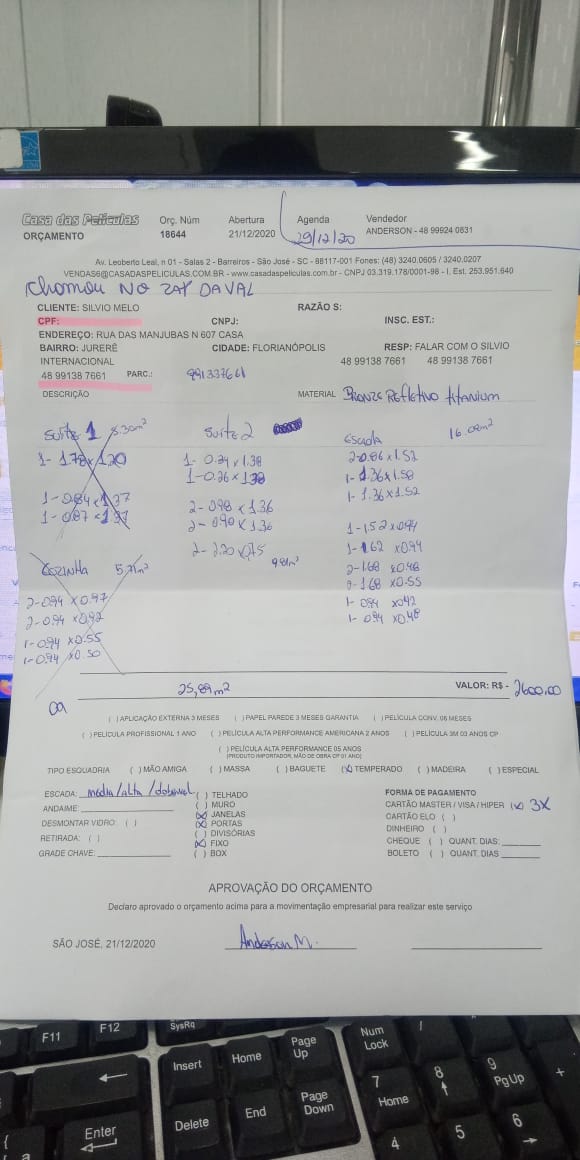 Casa das Películas Orç. Núm Abertura Agenda Vendedor
ORÇAMENTO 18644 21/12/2020 29/12/20 ANDERSON - 48 99924 0831
Av. Leoberto Leal, n 01 - Salas 2 - Barreiros - São José - SC - 88117-001 Fones: (48) 3240.0605 / 3240.0207
VENDAS6@CASADASPELICULAS.COM.BR - www.casadaspeliculas.com.br - CNPJ 03.319.178/0001-98 - I. Est. 253.951.640
Chamou NO ZAP DA VAL
CLIENTE: SILVIO MELO RAZÃO S:
CPF: CNPJ: INSC. EST.:
ENDEREÇO: RUA DAS MANJUBAS N 607 CASA
BAIRRO: JURERÊ CIDADE: FLORIANÓPOLIS RESP: FALAR COM O SILVIO
INTERNACIONAL 48 99138 7661 48 99138 7661
48 99138 7661 PARC.: 991337661
DESCRIÇÃO MATERIAL Bronze Refletivo titanium
Suíte 1 8.30m² Suíte 2 Escada 16.08m²
1- 1.78 x 1.20 1- 0.34 x 1.38 2-0.86 x 1.52
1-0.26 x 1.38 1- 1.36 x 1.58
1-0.84 x 1.37 2-098 x 1.36 1- 1.36 x 1.52
1-0.87 x 1.37 2-090 x 1.36 1-1.52 x 0.94
2- 2.20 x 0,75 9.81m² 1-1.62 x 0.94
COZINHA 5,71m² 2-1.68 x 0.48
2-0.94 x 0.97 2-1.68 x 0.55
2-0.94 x 0,92 1- 0.94 x 0.42
1-0.94 x 0.55 1- 0.94 x 0.48
1-0.94 x 0.50
25,89m² VALOR: R$ - 2600.00
( ) APLICAÇÃO EXTERNA 3 MESES ( ) PAPEL PAREDE 3 MESES GARANTIA ( ) PELÍCULA CONV. 06 MESES
( ) PELÍCULA PROFISSIONAL 1 ANO ( ) PELÍCULA ALTA PERFORMANCE AMERICANA 2 ANOS ( ) PELÍCULA 3M 03 ANOS CP
( ) PELÍCULA ALTA PERFORMANCE 05 ANOS
(PRODUTO IMPORTADOR, MÃO DE OBRA CP 01 ANO)
TIPO ESQUADRIA ( ) MÃO AMIGA ( ) MASSA ( ) BAGUETE (X) TEMPERADO ( ) MADEIRA ( ) ESPECIAL
ESCADA: média/alta/dobrável ( ) TELHADO FORMA DE PAGAMENTO
ANDAIME: ( ) MURO CARTÃO MASTER / VISA / HIPER (X) 3X
DESMONTAR VIDRO: ( ) (X) JANELAS CARTÃO ELO ( )
RETIRADA: ( ) (X) PORTAS DINHEIRO ( )
GRADE CHAVE: ( ) DIVISÓRIAS CHEQUE ( ) QUANT. DIAS:
(X) FIXO BOLETO ( ) QUANT. DIAS
( ) BOX
APROVAÇÃO DO ORÇAMENTO
Declaro aprovado o orçamento acima para a movimentação empresarial para realizar este serviço
SÃO JOSÉ, 21/12/2020 Anderson M.
F11 F12 SysRq
Insert Home Page Up Num Lock /
Delete End Page Down 7 Home 8 9 PgUp +
Enter 4 5 6